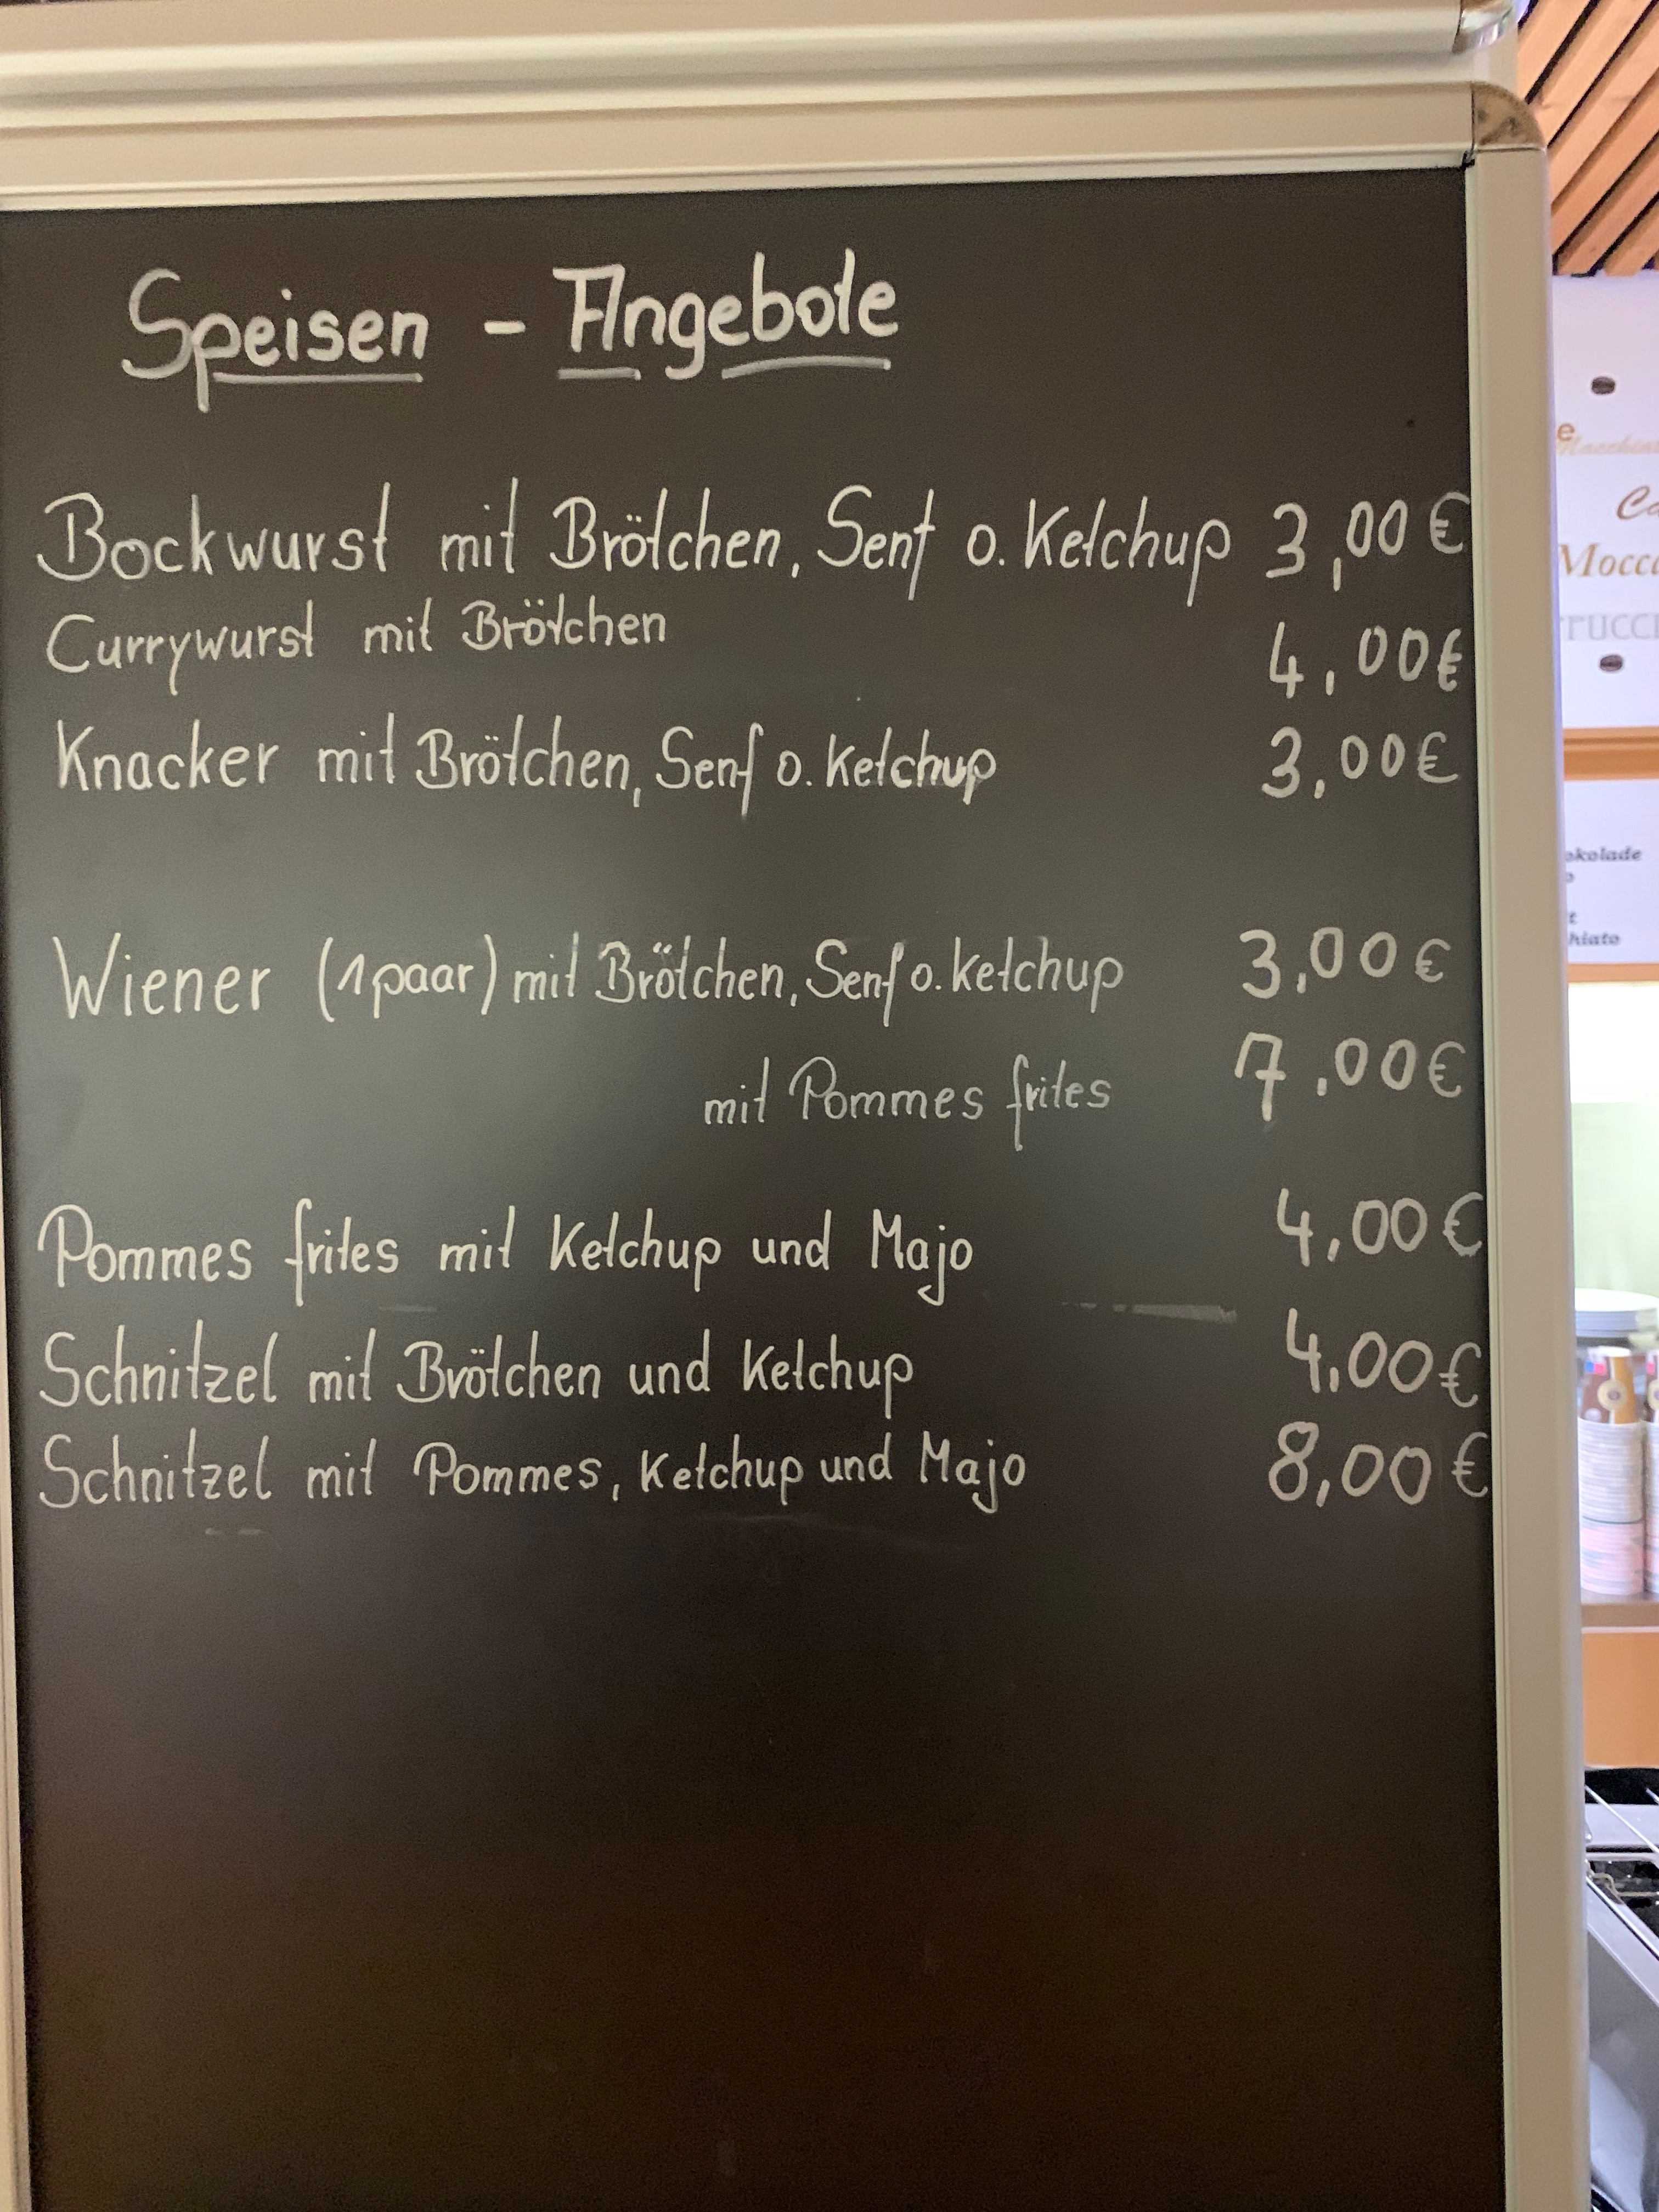 Speisen - Angebote
Bockwurst mit Brötchen, Senf o. Ketchup 3,00 €
Currywurst mit Brötchen 4,00€
Knacker mit Brötchen, Senf o. Ketchup 3,00€
Wiener (1paar) mit Brötchen, Senf o. Ketchup 3,00€
mit Pommes frites 7,00€
Pommes frites mit Ketchup und Majo 4,00€
Schnitzel mit Brötchen und Ketchup 4,00€
Schnitzel mit Pommes, Ketchup und Majo 8,00€
e
Macchiat
Ca
Mocca
rucci
okolade
hiato